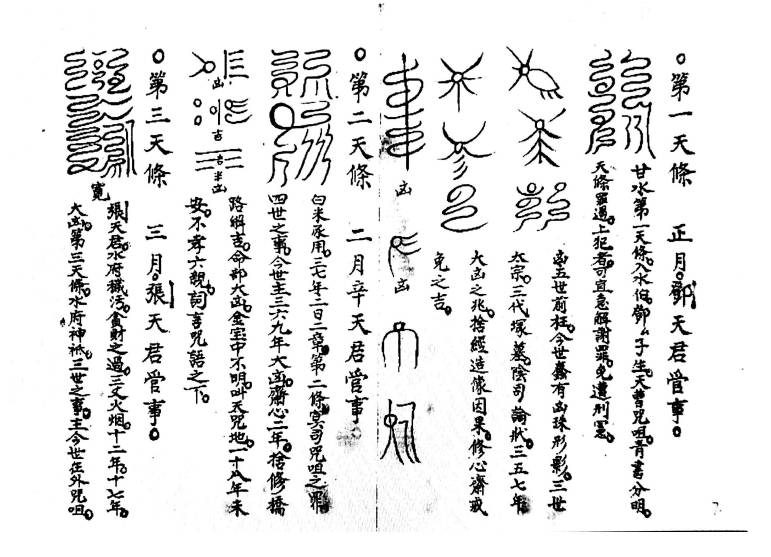 第一天條 正月鄧天君管事
甘水第一天條入水伯鄧厶子生天曹咒咀青書分明
天條罪過上犯者可宜急解謝罪免遭刑憲
五世前枉今世蠢有凶殊形影三世
太宗三代塚墓陰司論狀三五七年
大凶之兆捨經造像因果修心齋戒
免之吉
凶
凶
第二天條 二月辛天君管事
白米承用三七年二日二章第二條冥司咒咀之罪
四世之事今世主三六九年大凶齋心二年捨修橋
路解吉命部大凶金宝中不明叫天咒地一十八年未
安不孝六親詞言咒語之下
凶
吉
吉半凶
第三天條 三月張天君管事
寛
張天君水府穢污貪財之過三丈火烟十二年十七年
大凶第三天條水府神祇三世之事主今世在外咒咀